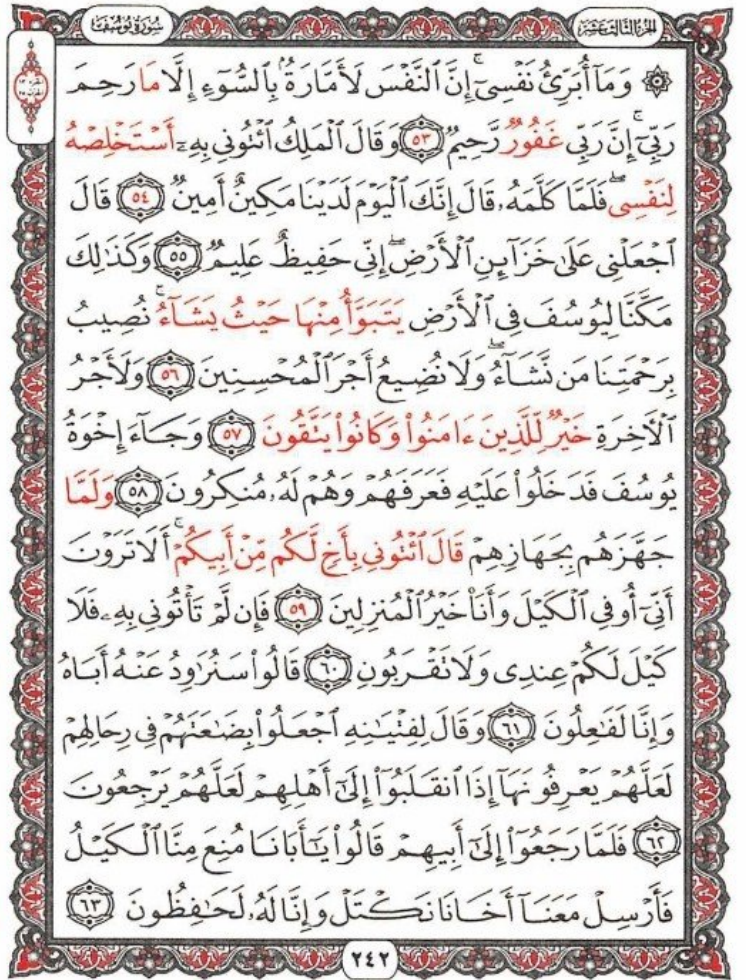 الجزء الثالث عشر
سورة يوسف
۞ وَمَآ أُبَرِّئُ نَفْسِىٓ ۚ إِنَّ ٱلنَّفْسَ لَأَمَّارَةٌۢ بِٱلسُّوٓءِ إِلَّا مَا رَحِمَ
رَبِّىٓ ۚ إِنَّ رَبِّى غَفُورٌ رَّحِيمٌ ٥٣ وَقَالَ ٱلْمَلِكُ ٱئْتُونِى بِهِۦٓ أَسْتَخْلِصْهُ
لِنَفْسِى ۖ فَلَمَّا كَلَّمَهُۥ قَالَ إِنَّكَ ٱلْيَوْمَ لَدَيْنَا مَكِينٌ أَمِينٌ ٥٤ قَالَ
ٱجْعَلْنِى عَلَىٰ خَزَآئِنِ ٱلْأَرْضِ ۖ إِنِّى حَفِيظٌ عَلِيمٌ ٥٥ وَكَذَٰلِكَ
مَكَّنَّا لِيُوسُفَ فِى ٱلْأَرْضِ يَتَبَوَّأُ مِنْهَا حَيْثُ يَشَآءُ ۚ نُصِيبُ
بِرَحْمَتِنَا مَن نَّشَآءُ ۖ وَلَا نُضِيعُ أَجْرَ ٱلْمُحْسِنِينَ ٥٦ وَلَأَجْرُ
ٱلْأَخِرَةِ خَيْرٌ لِّلَّذِينَ ءَامَنُوا۟ وَكَانُوا۟ يَتَّقُونَ ٥٧ وَجَآءَ إِخْوَةُ
يُوسُفَ فَدَخَلُوا۟ عَلَيْهِ فَعَرَفَهُمْ وَهُمْ لَهُۥ مُنكِرُونَ ٥٨ وَلَمَّا
جَهَّزَهُم بِجَهَازِهِمْ قَالَ ٱئْتُونِى بِأَخٍ لَّكُم مِّنْ أَبِيكُمْ ۚ أَلَا تَرَوْنَ
أَنِّىٓ أُوفِى ٱلْكَيْلَ وَأَنَا۠ خَيْرُ ٱلْمُنزِلِينَ ٥٩ فَإِن لَّمْ تَأْتُونِى بِهِۦ فَلَا
كَيْلَ لَكُمْ عِندِى وَلَا تَقْرَبُونِ ٦٠ قَالُوا۟ سَنُرَٰوِدُ عَنْهُ أَبَاهُ
وَإِنَّا لَفَـٰعِلُونَ ٦١ وَقَالَ لِفِتْيَـٰنِهِ ٱجْعَلُوا۟ بِضَـٰعَتَهُمْ فِى رِحَالِهِمْ
لَعَلَّهُمْ يَعْرِفُونَهَآ إِذَا ٱنقَلَبُوٓا۟ إِلَىٰٓ أَهْلِهِمْ لَعَلَّهُمْ يَرْجِعُونَ
٦٢ فَلَمَّا رَجَعُوٓا۟ إِلَىٰٓ أَبِيهِمْ قَالُوا۟ يَـٰٓأَبَانَا مُنِعَ مِنَّا ٱلْكَيْلُ
فَأَرْسِلْ مَعَنَآ أَخَانَا نَكْتَلْ وَإِنَّا لَهُۥ لَحَـٰفِظُونَ ٦٣
٢٤٢